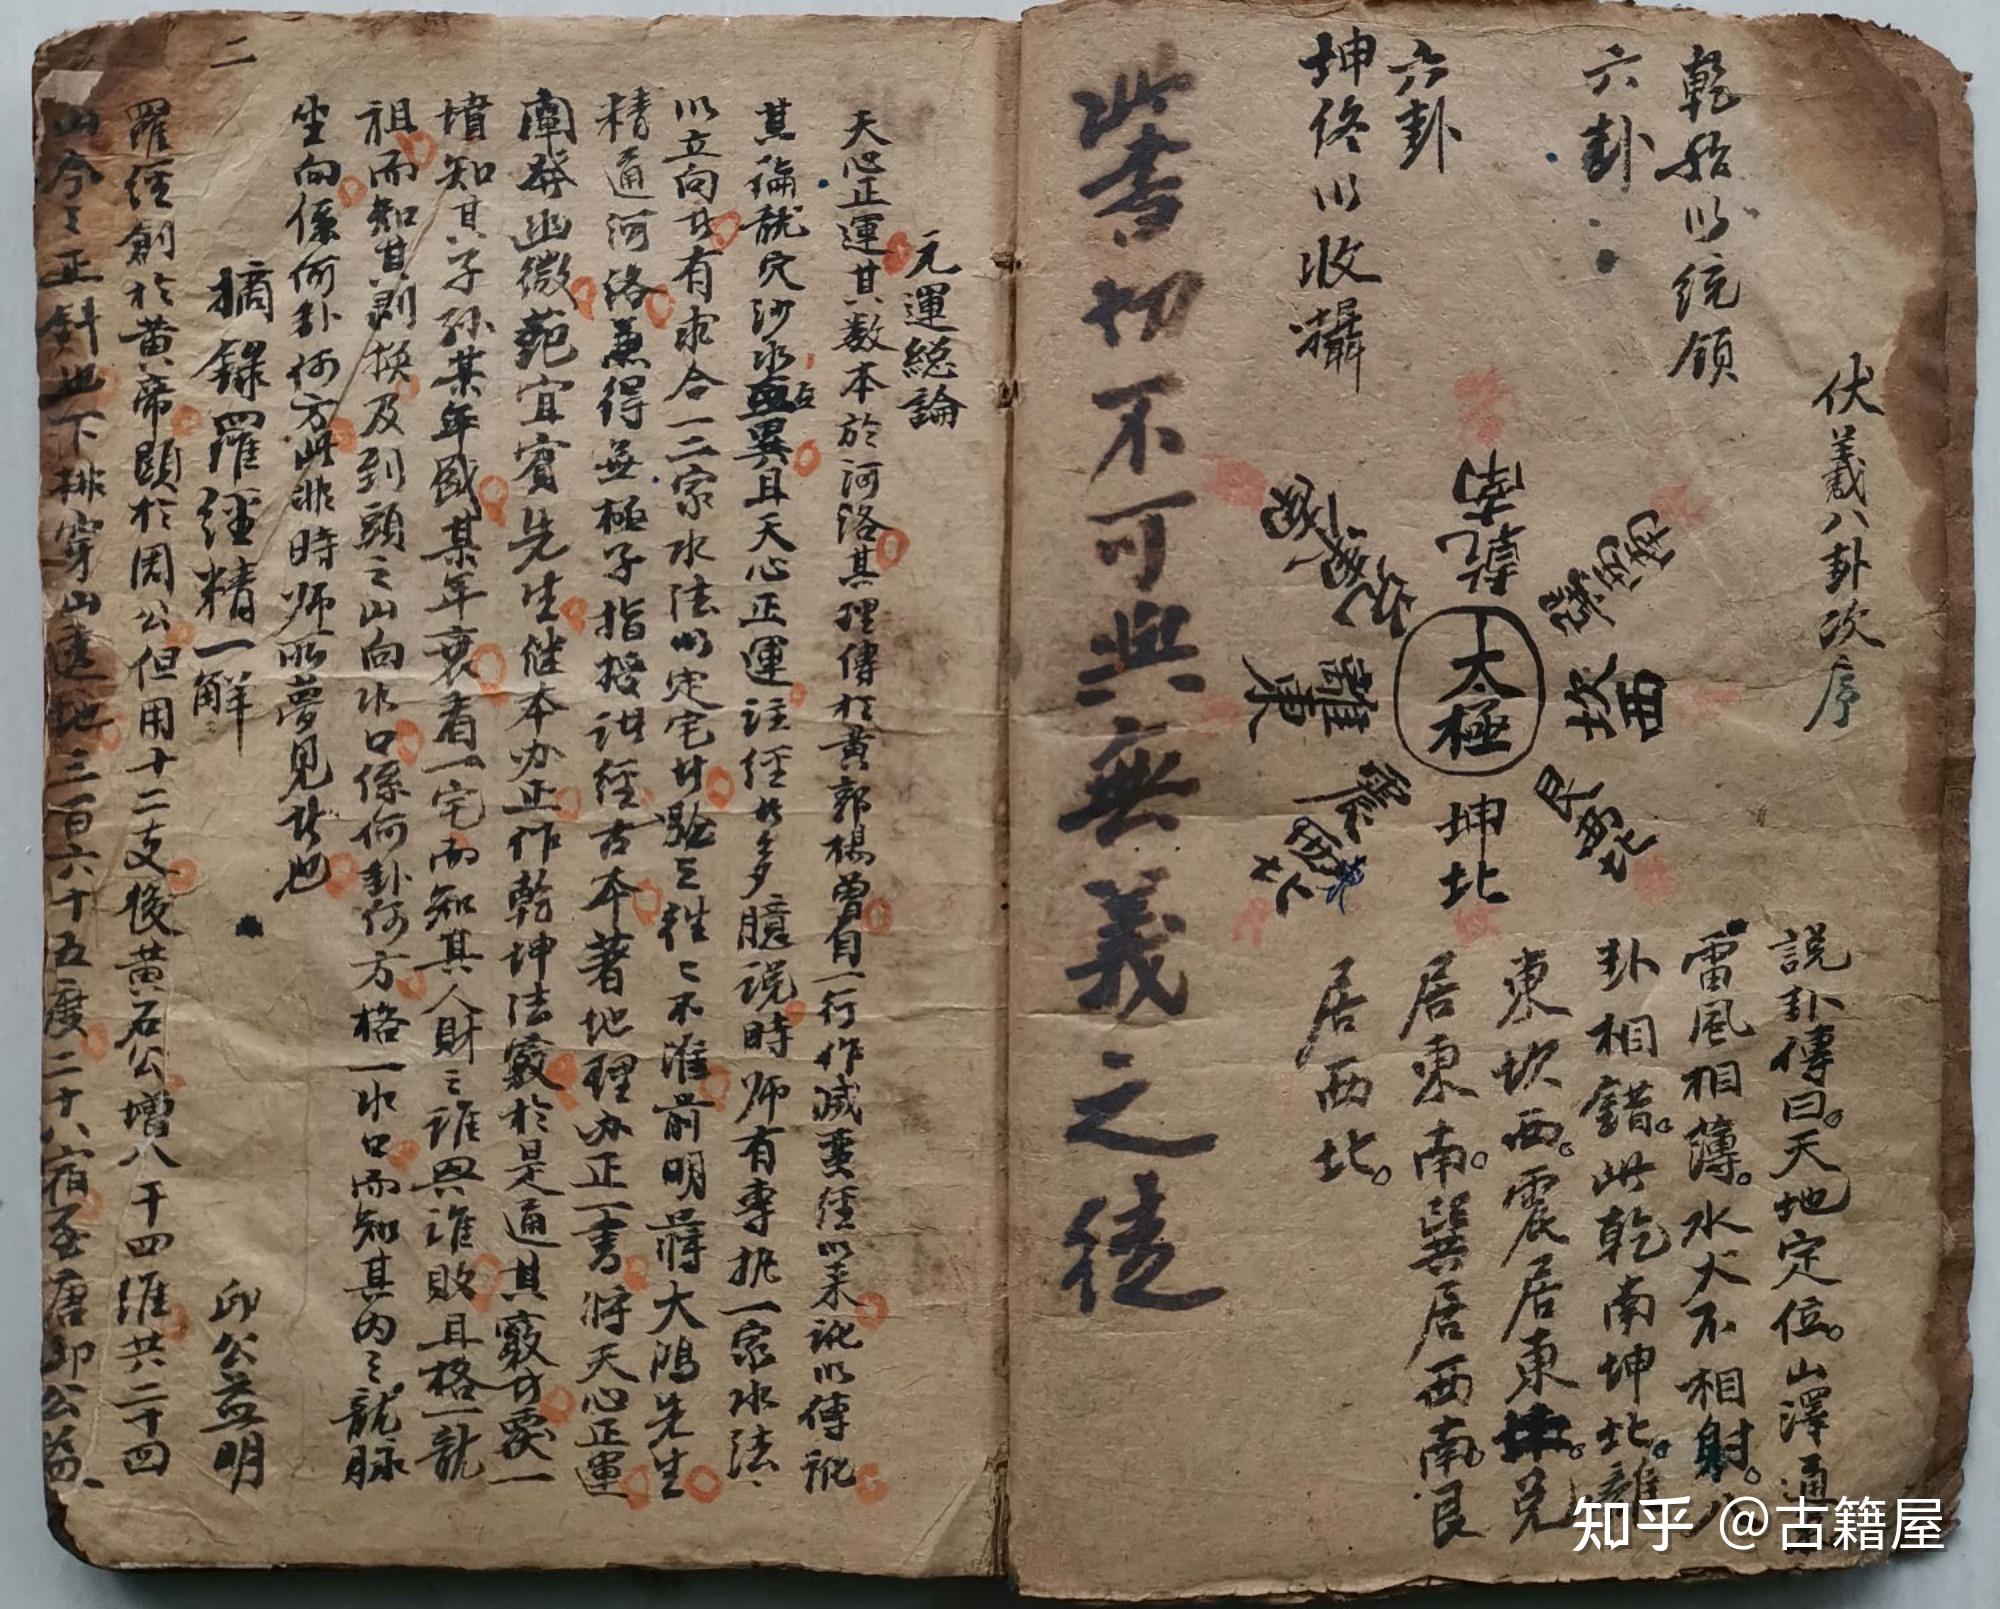 伏羲八卦次序
乾始以統領
六卦
六卦
坤終以收攝
乾南
太極
坤北
離東
坎西
說卦傳曰。天地定位。山澤通
雷風相薄。水火不相射。八
卦相錯。此乾南坤北。離
東坎西。震居東。兌
居東南。巽居西南。艮
居西北。
此書切不可與無義之徒
元運總論
天心正運其数本於河洛其理傳於黃郭楊曾自一行作滅蛮經以来訛以傳訛
其論龍穴沙水異且天心正運註經者多臆說時师有專執一家水法
以立向者有求合一二家水法以定宅者驗之往々不准前明蔣大鴻先生
精通河洛兼得無極子指授註經古本著地理办正一書将天心正運
闡發幽微範宜賓先生継本办正作乾坤法竅於是通其竅者覆一
墳知其子孙某年盛某年衰看一宅而知其人財之誰興誰敗且格一龍
祖而知其剥换及到頭之山向水口係何卦何方格一水口而知其内之龍脉
坐向係何卦何方此非時师所夢見者也
摘錄羅經精一解
邱公益明
羅經創於黄帝顕於周公但用十二支後黄石公增八干四維共二十四
二
山今之正斜也下排穿山透地三百六十五度二十八宿至唐邱公益
知乎 @古籍屋